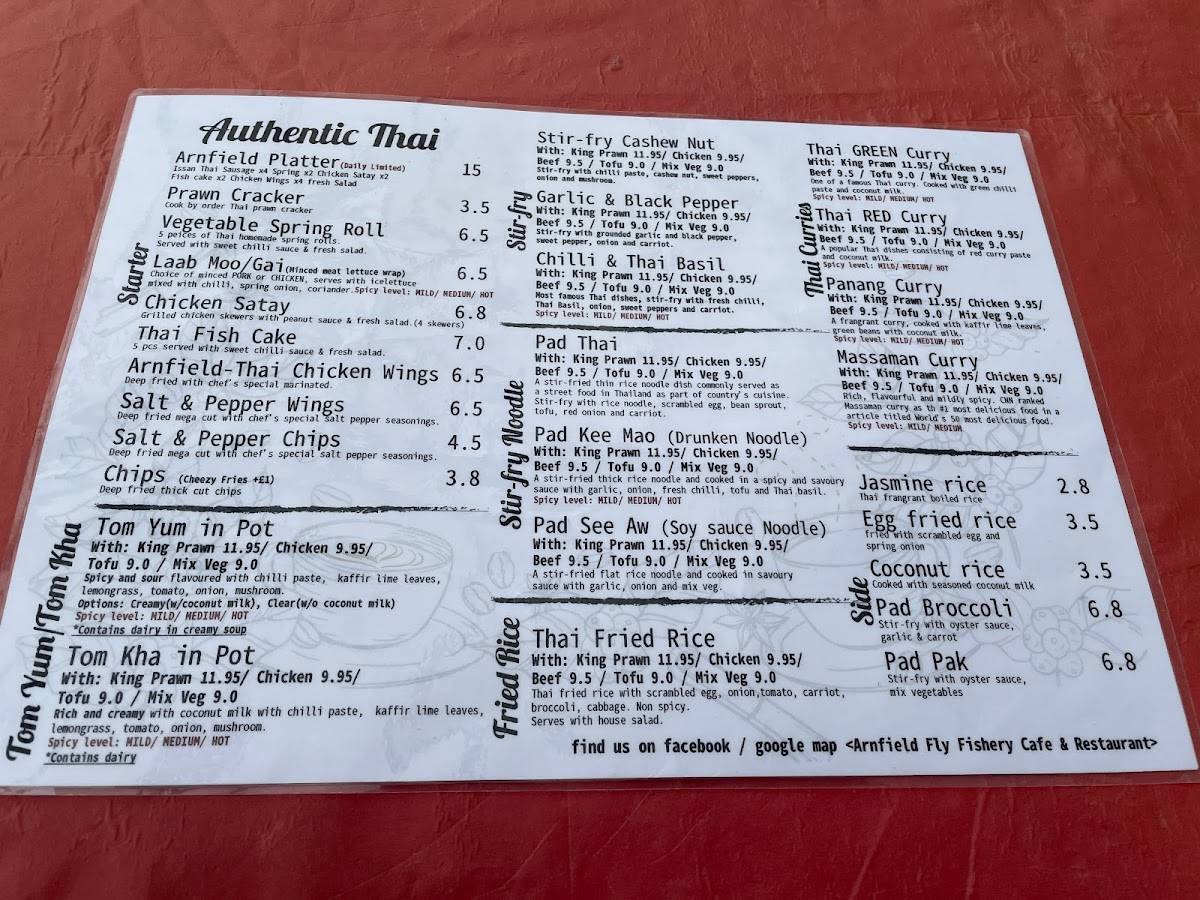 Authentic Thai
Starter
Arnfield Platter(Daily Limited) 15
Issan Thai Sausage x4 Spring x2 Chicken Satay x2
Fish cake x2 Chicken Wings x4 fresh Salad
Prawn Cracker 3.5
Cook by order Thai prawn cracker
Vegetable Spring Roll 6.5
5 peices of Thai homemade spring rolls.
Served with sweet chilli sauce & fresh salad.
Laab Moo/Gai(Minced meat lettuce wrap) 6.5
Choice of minced PORK or CHICKEN, serves with icelettuce
mixed with chilli, spring onion, coriander.Spicy level: MILD/ MEDIUM/ HOT
Chicken Satay 6.8
Grilled chicken skewers with peanut sauce & fresh salad.(4 skewers)
Thai Fish Cake 7.0
5 pcs served with sweet chilli sauce & fresh salad.
Arnfield-Thai Chicken Wings 6.5
Deep fried with chef's special marinated.
Salt & Pepper Wings 6.5
Deep fried mega cut with chef's special salt pepper seasonings.
Salt & Pepper Chips 4.5
Deep fried mega cut with chef's special salt pepper seasonings.
Chips (Cheezy Fries +£1) 3.8
Deep fried thick cut chips
Tom Yum/Tom Kha
Tom Yum in Pot
With: King Prawn 11.95/ Chicken 9.95/
Tofu 9.0 / Mix Veg 9.0
Spicy and sour flavoured with chilli paste, kaffir lime leaves,
lemongrass, tomato, onion, mushroom.
Options: Creamy(w/coconut milk), Clear(w/o coconut milk)
Spicy level: MILD/ MEDIUM/ HOT
*Contains dairy in creamy soup
Tom Kha in Pot
With: King Prawn 11.95/ Chicken 9.95/
Tofu 9.0 / Mix Veg 9.0
Rich and creamy with coconut milk with chilli paste, kaffir lime leaves,
lemongrass, tomato, onion, mushroom.
Spicy level: MILD/ MEDIUM/ HOT
*Contains dairy
Stir-fry
Stir-fry Cashew Nut
With: King Prawn 11.95/ Chicken 9.95/
Beef 9.5 / Tofu 9.0 / Mix Veg 9.0
Stir-fry with chilli paste, cashew nut, sweet peppers,
onion and mushroom.
Garlic & Black Pepper
With: King Prawn 11.95/ Chicken 9.95/
Beef 9.5 / Tofu 9.0 / Mix Veg 9.0
Stir-fry with grounded garlic and black pepper,
sweet pepper, onion and carriot.
Chilli & Thai Basil
With: King Prawn 11.95/ Chicken 9.95/
Beef 9.5 / Tofu 9.0 / Mix Veg 9.0
Most famous Thai dishes, stir-fry with fresh chilli,
Thai Basil, onion, sweet peppers and carriot.
Spicy level: MILD/ MEDIUM/ HOT
Stir-fry Noodle
Pad Thai
With: King Prawn 11.95/ Chicken 9.95/
Beef 9.5 / Tofu 9.0 / Mix Veg 9.0
A stir-fried thin rice noodle dish commonly served as
a street food in Thailand as part of country's cuisine.
Stir-fry with rice noodle, scrambled egg, bean sprout,
tofu, red onion and carriot.
Pad Kee Mao (Drunken Noodle)
With: King Prawn 11.95/ Chicken 9.95/
Beef 9.5 / Tofu 9.0 / Mix Veg 9.0
A stir-fried thick rice noodle and cooked in a spicy and savoury
sauce with garlic, onion, fresh chilli, tofu and Thai basil.
Spicy level: MILD/ MEDIUM/ HOT
Pad See Aw (Soy sauce Noodle)
With: King Prawn 11.95/ Chicken 9.95/
Beef 9.5 / Tofu 9.0 / Mix Veg 9.0
A stir-fried flat rice noodle and cooked in savoury
sauce with garlic, onion and mix veg.
Fried Rice
Thai Fried Rice
With: King Prawn 11.95/ Chicken 9.95/
Beef 9.5 / Tofu 9.0 / Mix Veg 9.0
Thai fried rice with scrambled egg, onion,tomato, carriot,
broccoli, cabbage. Non spicy.
Serves with house salad.
Thai Curries
Thai GREEN Curry
With: King Prawn 11.95/ Chicken 9.95/
Beef 9.5 / Tofu 9.0 / Mix Veg 9.0
One of a famous Thai curry. Cooked with green chilli
paste and coconut milk.
Spicy level: MILD/ MEDIUM/ HOT
Thai RED Curry
With: King Prawn 11.95/ Chicken 9.95/
Beef 9.5 / Tofu 9.0 / Mix Veg 9.0
A popular Thai dishes consisting of red curry paste
and coconut milk.
Spicy level: MILD/ MEDIUM/ HOT
Panang Curry
With: King Prawn 11.95/ Chicken 9.95/
Beef 9.5 / Tofu 9.0 / Mix Veg 9.0
A frangrant curry, cooked with kaffir lime leaves,
green beans with coconut milk.
Spicy level: MILD/ MEDIUM/ HOT
Massaman Curry
With: King Prawn 11.95/ Chicken 9.95/
Beef 9.5 / Tofu 9.0 / Mix Veg 9.0
Rich, flavourful and mildly spicy. CNN ranked
Massaman curry as th #1 most delicious food in a
article titled World's 50 most delicious food.
Spicy level: MILD/ MEDIUM
Side
Jasmine rice 2.8
Thai frangrant boiled rice
Egg fried rice 3.5
fried with scrambled egg and
spring onion
Coconut rice 3.5
Cooked with seasoned coconut milk
Pad Broccoli 6.8
Stir-fry with oyster sauce,
garlic & carrot
Pad Pak 6.8
Stir-fry with oyster sauce,
mix vegetables
find us on facebook / google map <Arnfield Fly Fishery Cafe & Restaurant>